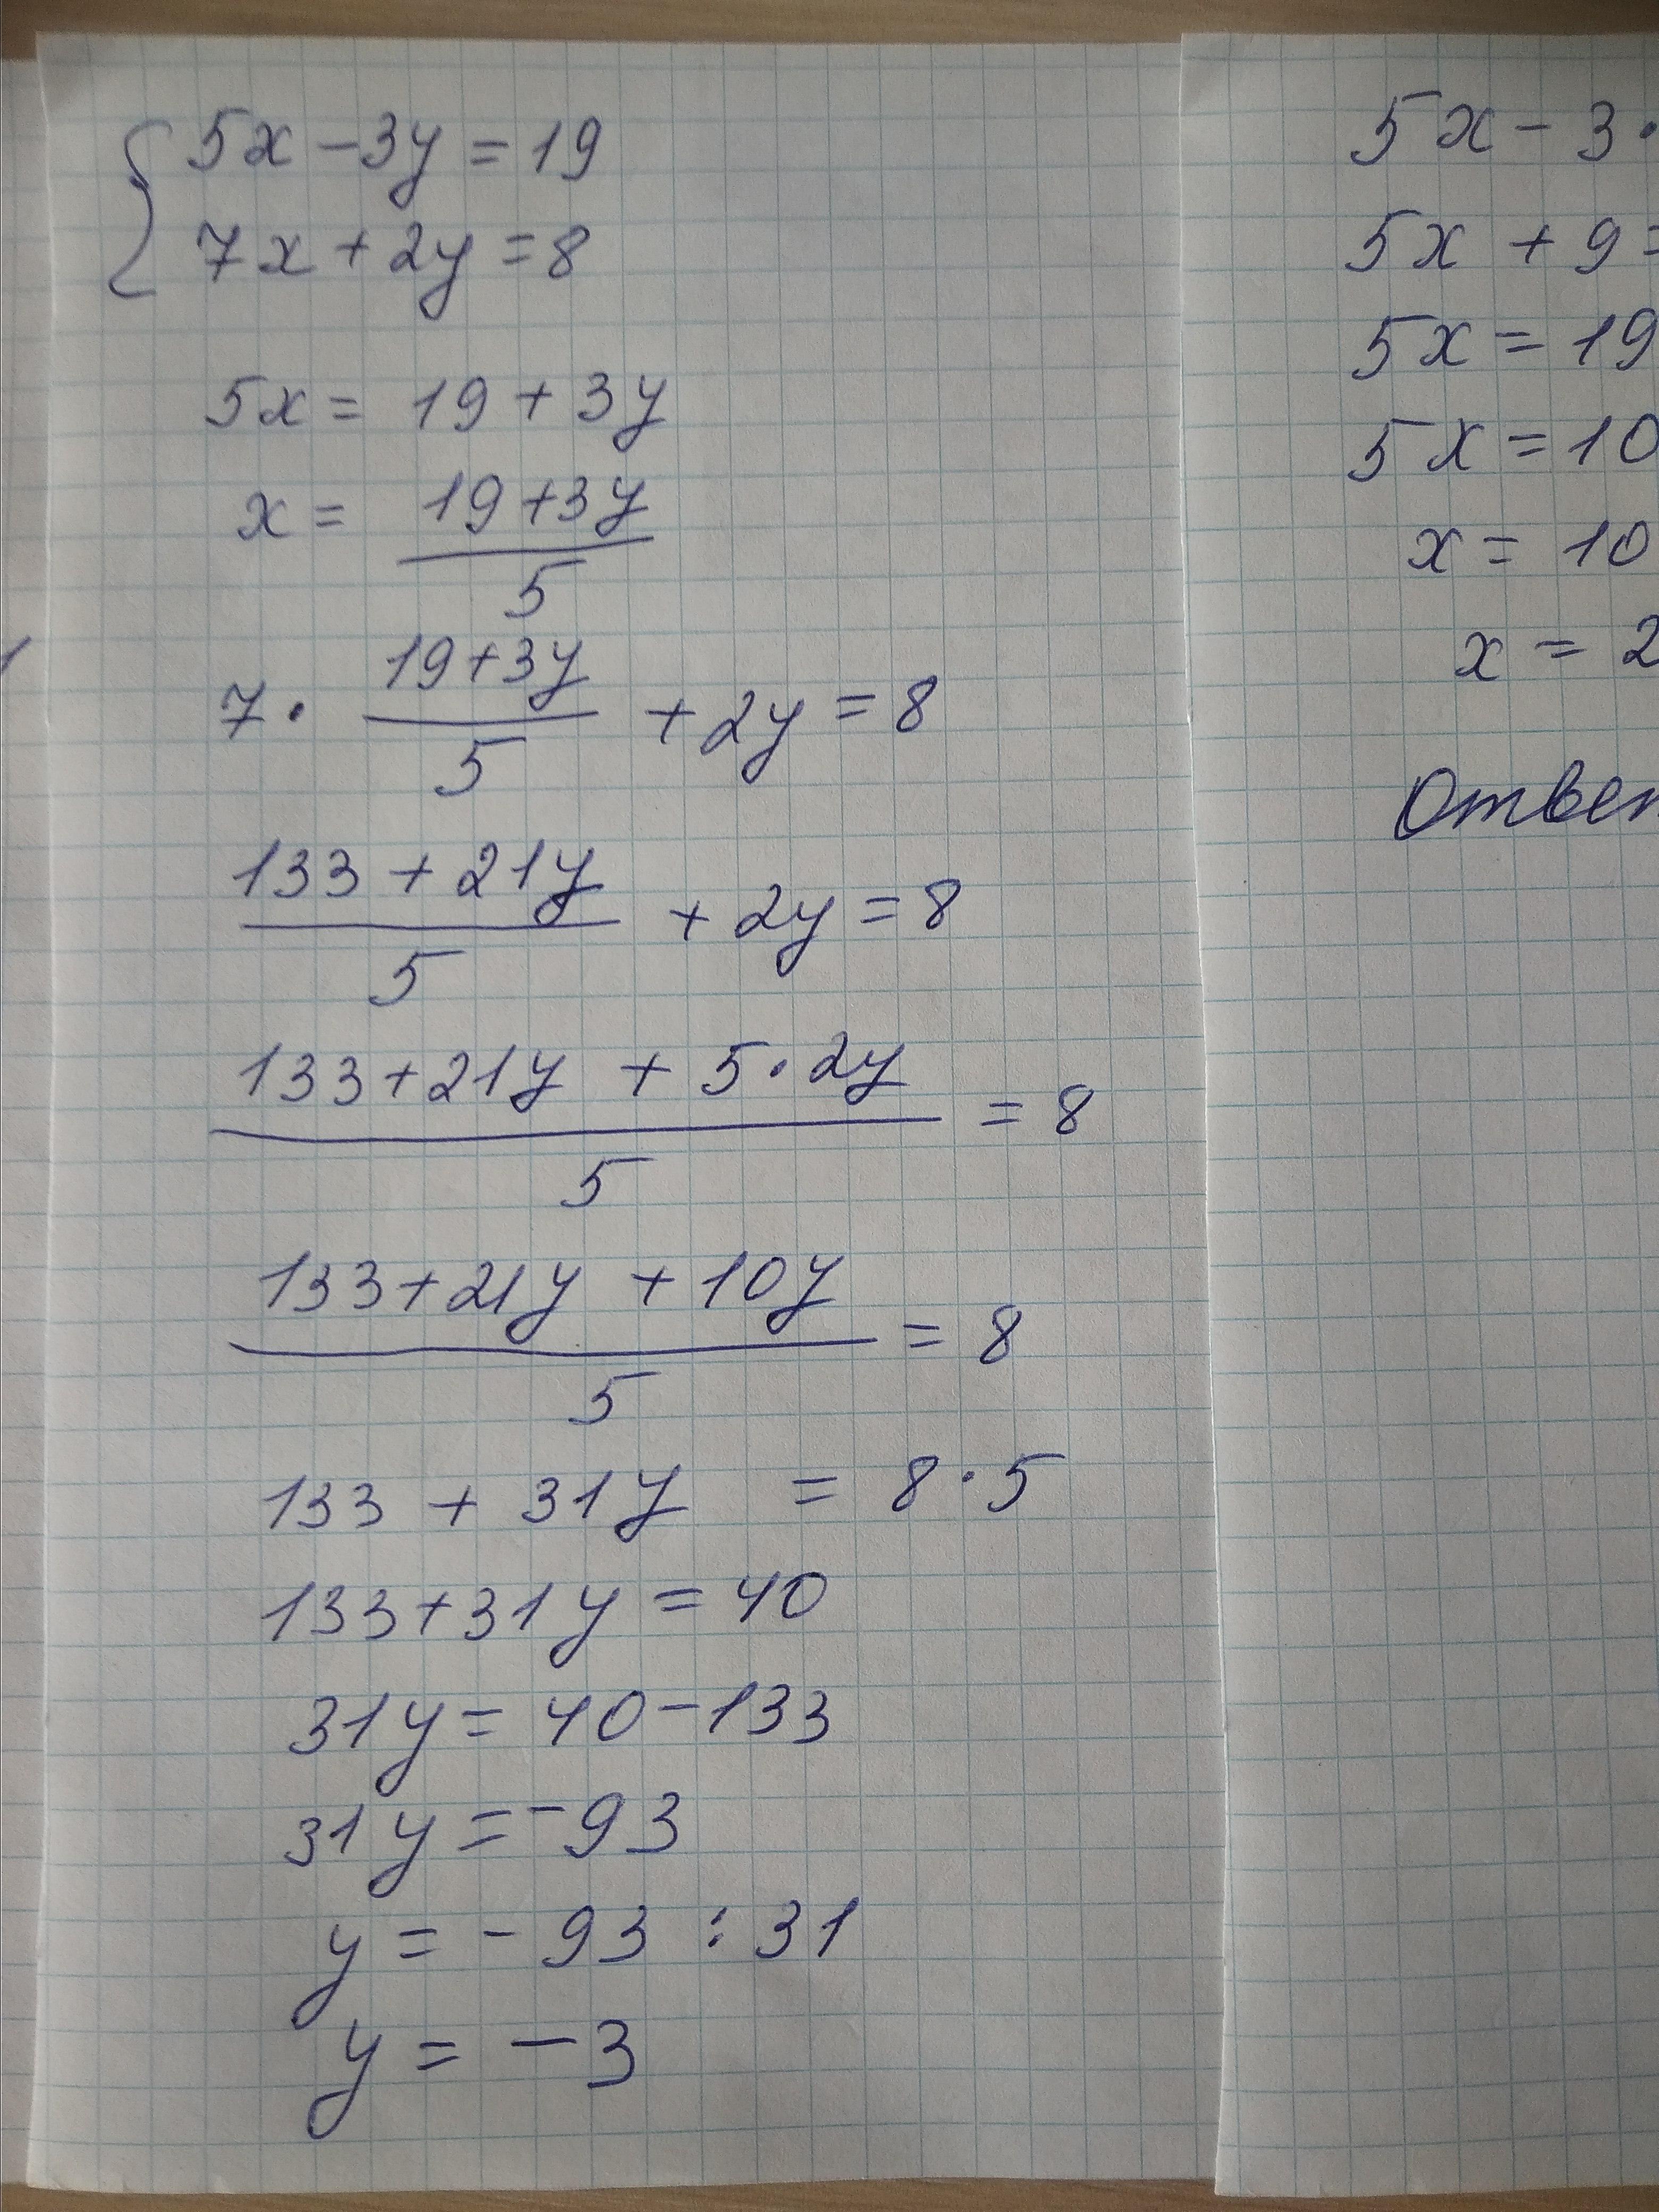 { 5x - 3y = 19
7x + 2y = 8
5x = 19 + 3y
x = (19 + 3y) / 5
7 · (19 + 3y) / 5 + 2y = 8
(133 + 21y) / 5 + 2y = 8
(133 + 21y + 5 · 2y) / 5 = 8
(133 + 21y + 10y) / 5 = 8
133 + 31y = 8 · 5
133 + 31y = 40
31y = 40 - 133
31y = -93
y = -93 : 31
y = -3
5x - 3 ·
5x + 9 =
5x = 19
5x = 10
x = 10
x = 2